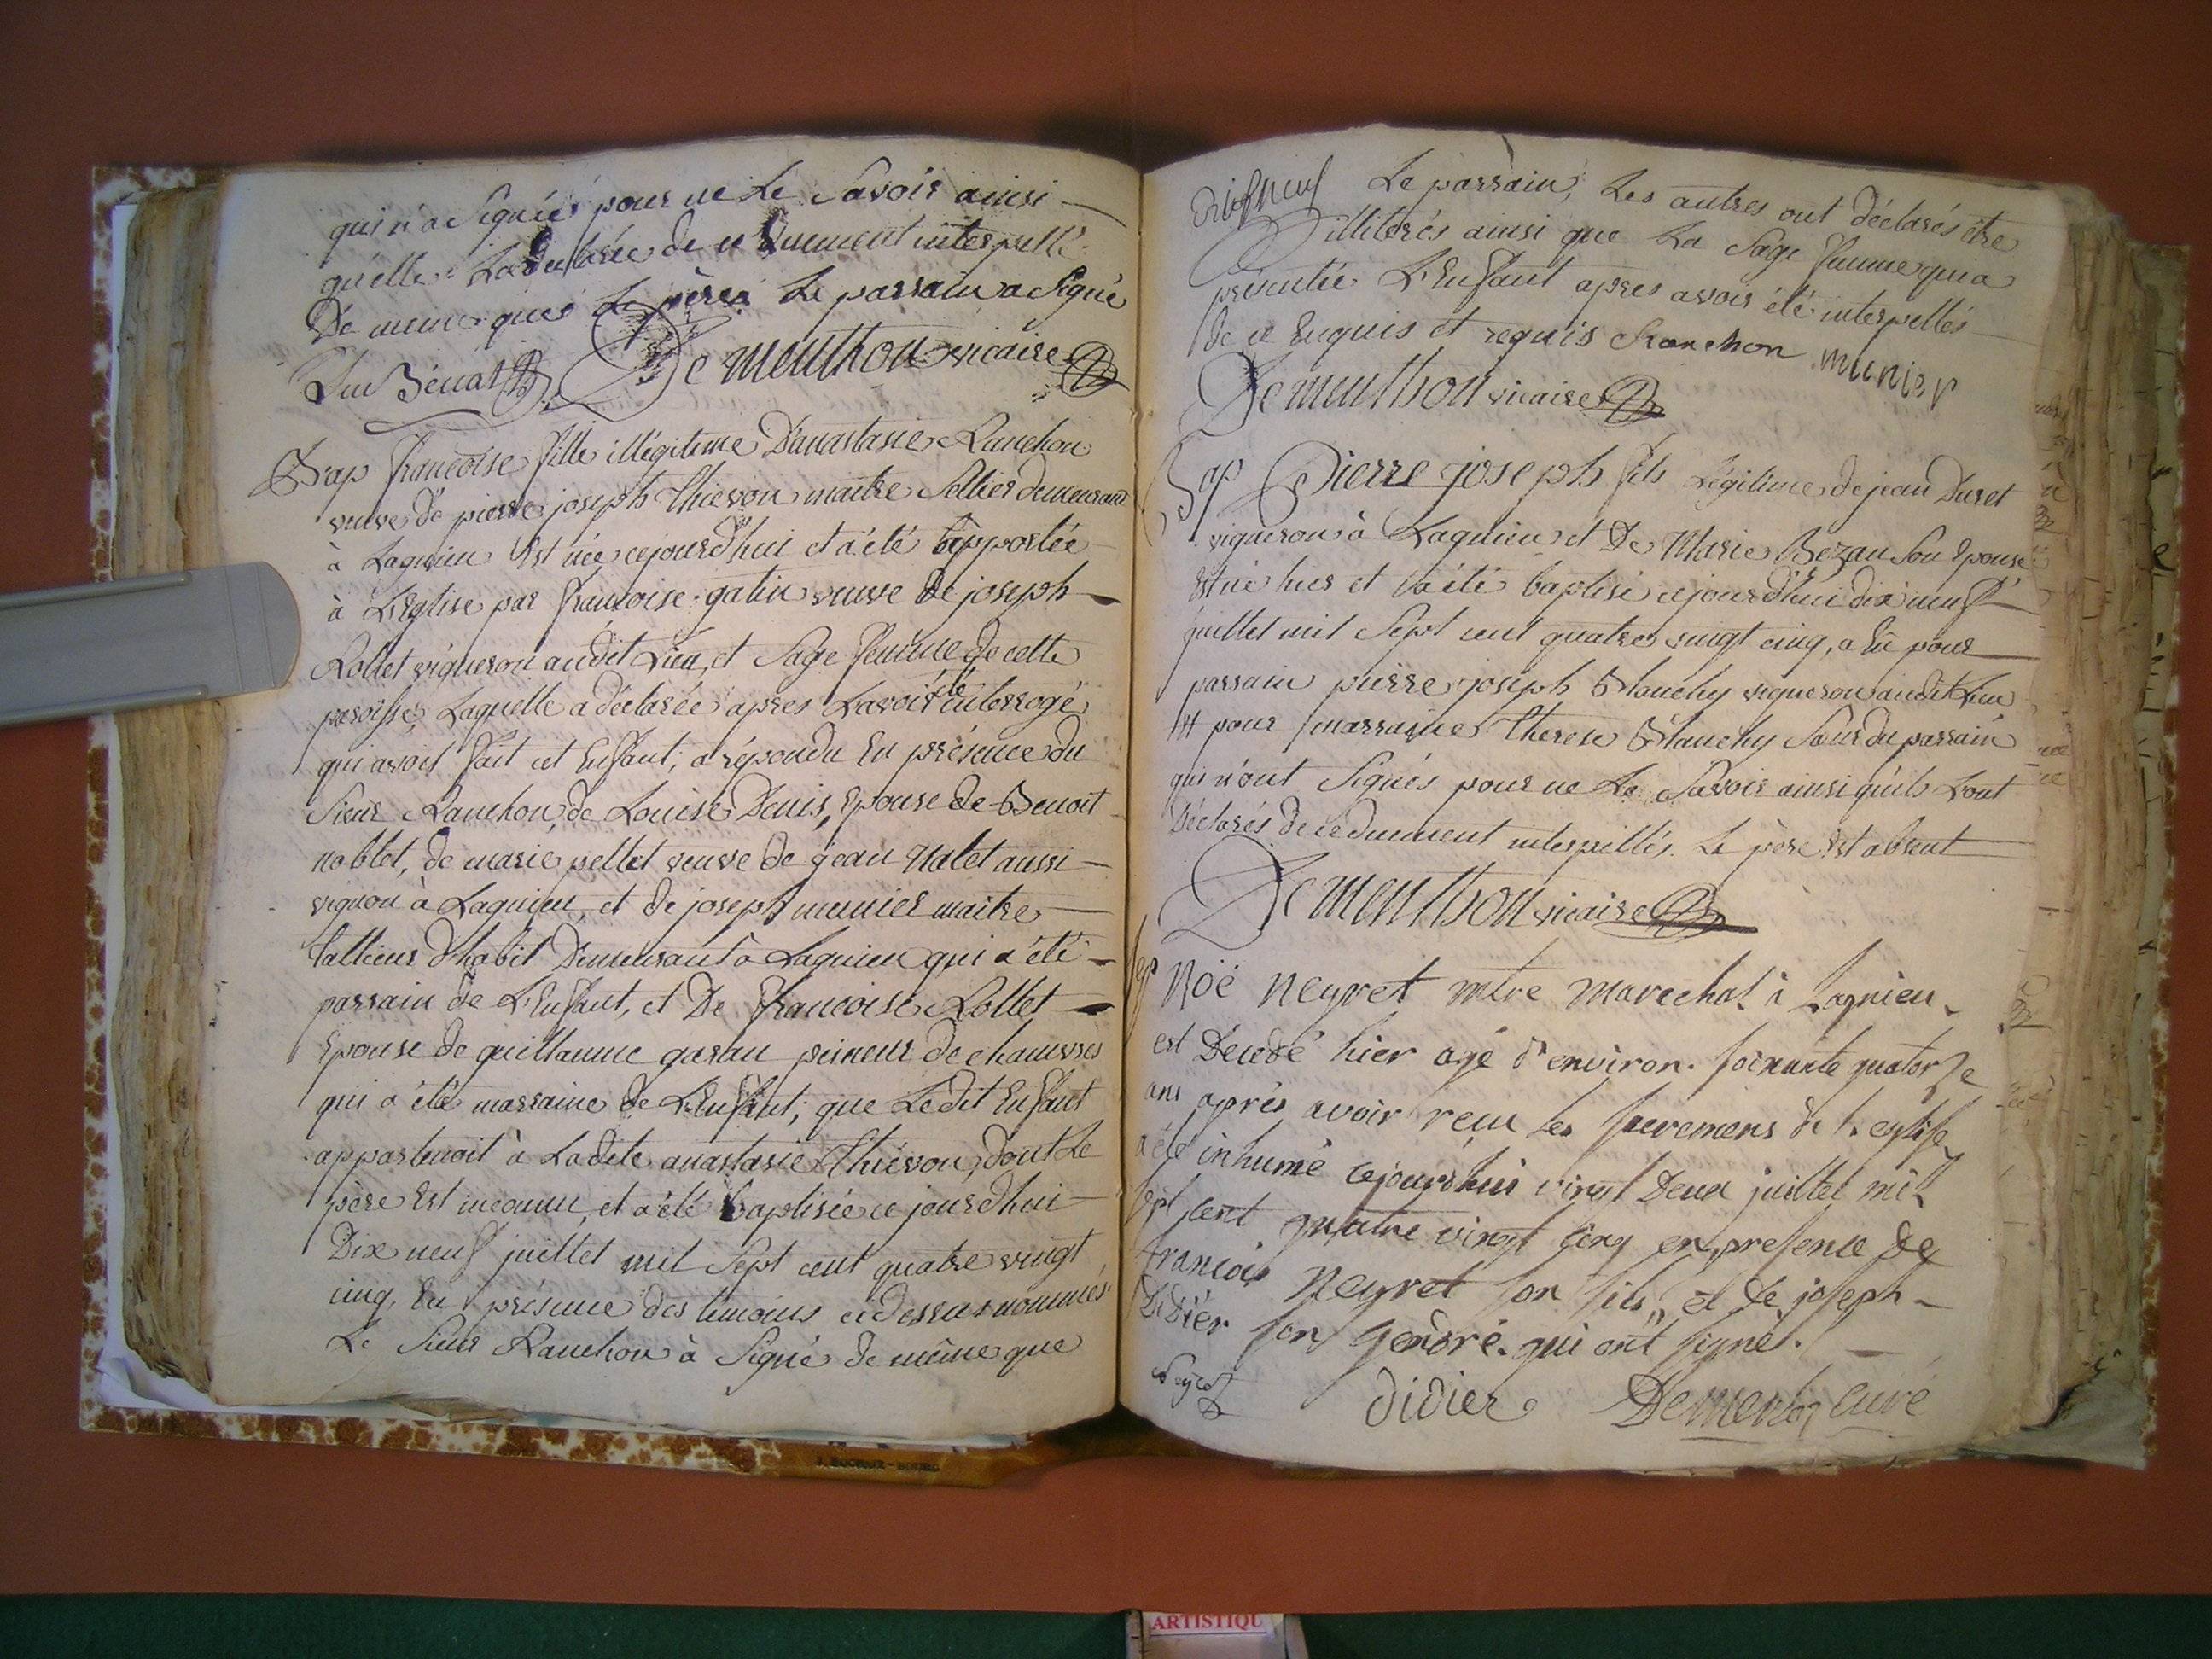 qui n'a Signée pour ne Le Savoir ainsi
qu'elle La déclarée de ce Duement interpellé
De meme que Le père. Le parrain a Signé
Dementhon vicaire
Bap françoise fille illégitime D'anastasie Ranchon
veuve de pierre joseph Thievon maitre Sellier demeurant
à Lagnieu Est née cejourd'hui et a été apportée
à L'Eglise par françoise gatin veuve de joseph
Rollet vigneron audit Lieu, et Sage femme de cette
paroisse, Laquelle a déclarée apres Lavoir été interrogé
qui avoit fait cet Enfant, a répondu En présence du
Sieur Ranchon, de Louise Denis, Epouse de Benoit
noblet, de marie pellet veuve de jean Nalet aussi
vignon à Lagnieu, et de joseph munier maitre
tallieur d'habit Demeurant à Lagnieu qui a été
parrain de L'Enfant, et De françoise Rollet
Epouse de guillaume garau peineur de chanvres
qui a été marraine de L'Enfant; que Ledit Enfant
appartenoit à Ladite anastasie Thiévon, dont Le
père Est inconnu, et a été baptisée ce jourd'hui
Dix neuf juillet mil Sept cent quatre vingt
cinq, En présence des temoins cidessus nommés
Le Sieur Ranchon à Signé de même que
Le parrain, Les autres ont déclarés être
illiterés ainsi que La Sage femme qui a
présentée L'Enfant apres avoir été interpellés
de ce Enquis et requis Ranchon munier
Dementhon vicaire
Bap Pierre joseph fils Légitime de jean Duret
vigneron à Lagnieu et De Marie Bezau Son Epouse
Est né hier et a été baptisé cejourd'hui dix neuf
juillet mil Sept cent quatre vingt cinq, a Eu pour
parrain pierre joseph Blanchy vigneron audit Lieu
Et pour marraine Therese Blanchy Sœur du parrain
qui n'ont Signés pour ne Le Savoir ainsi qu'ils L'ont
Déclarés de ce duement interpellés. Le père Est absent
Dementhon vicaire
Sep Noë Neyret mtre marechal à Lagnieu
est Decedé hier agé d'environ soixante quatorze
ans après avoir reçu les sacremens de l'eglise
a été inhumé cejourdhui vingt Deux juillet mil
sept cent quatre vingt cinq en presence de
françois Neyret son fils, et de joseph
Didier son gendre qui ont signés.
Neyret didier curé